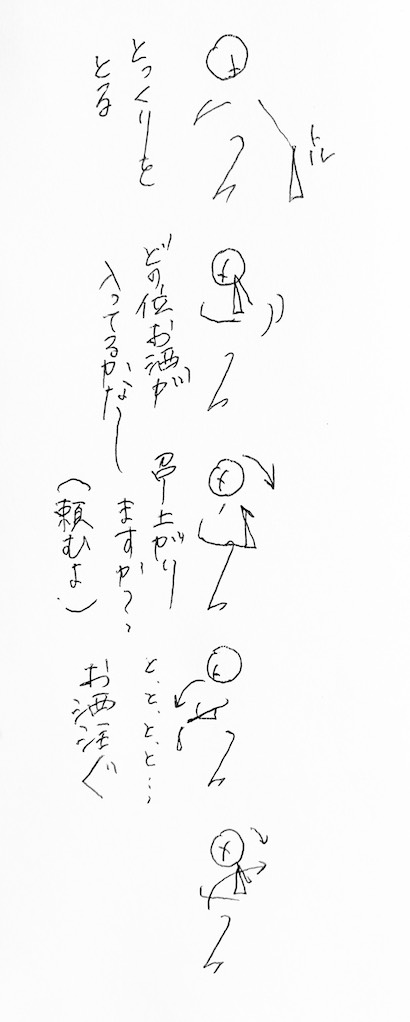 トル
とっくりを
とる
どの位お酒が
入ってるかな〜
召し上がり
ますか?
(頼むよ)
と、と、と、と…
お酒注ぐ